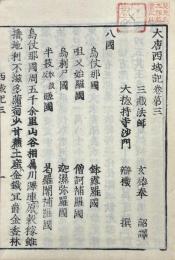 大唐西域記卷第三
三藏法師 玄奘奉 詔譯
大總持寺沙門 辯機 撰
八國
烏仗那國
鉢露羅國
呾叉始羅國
僧訶補羅國
烏剌尸國
迦濕彌羅國
半笯嗟國
曷羅闍補羅國
烏仗那國周五千餘里山谷相屬川澤連原穀稼雖
播地利不滋多蒲萄少甘蔗土產金鐵宜鬱金香林
西域記三